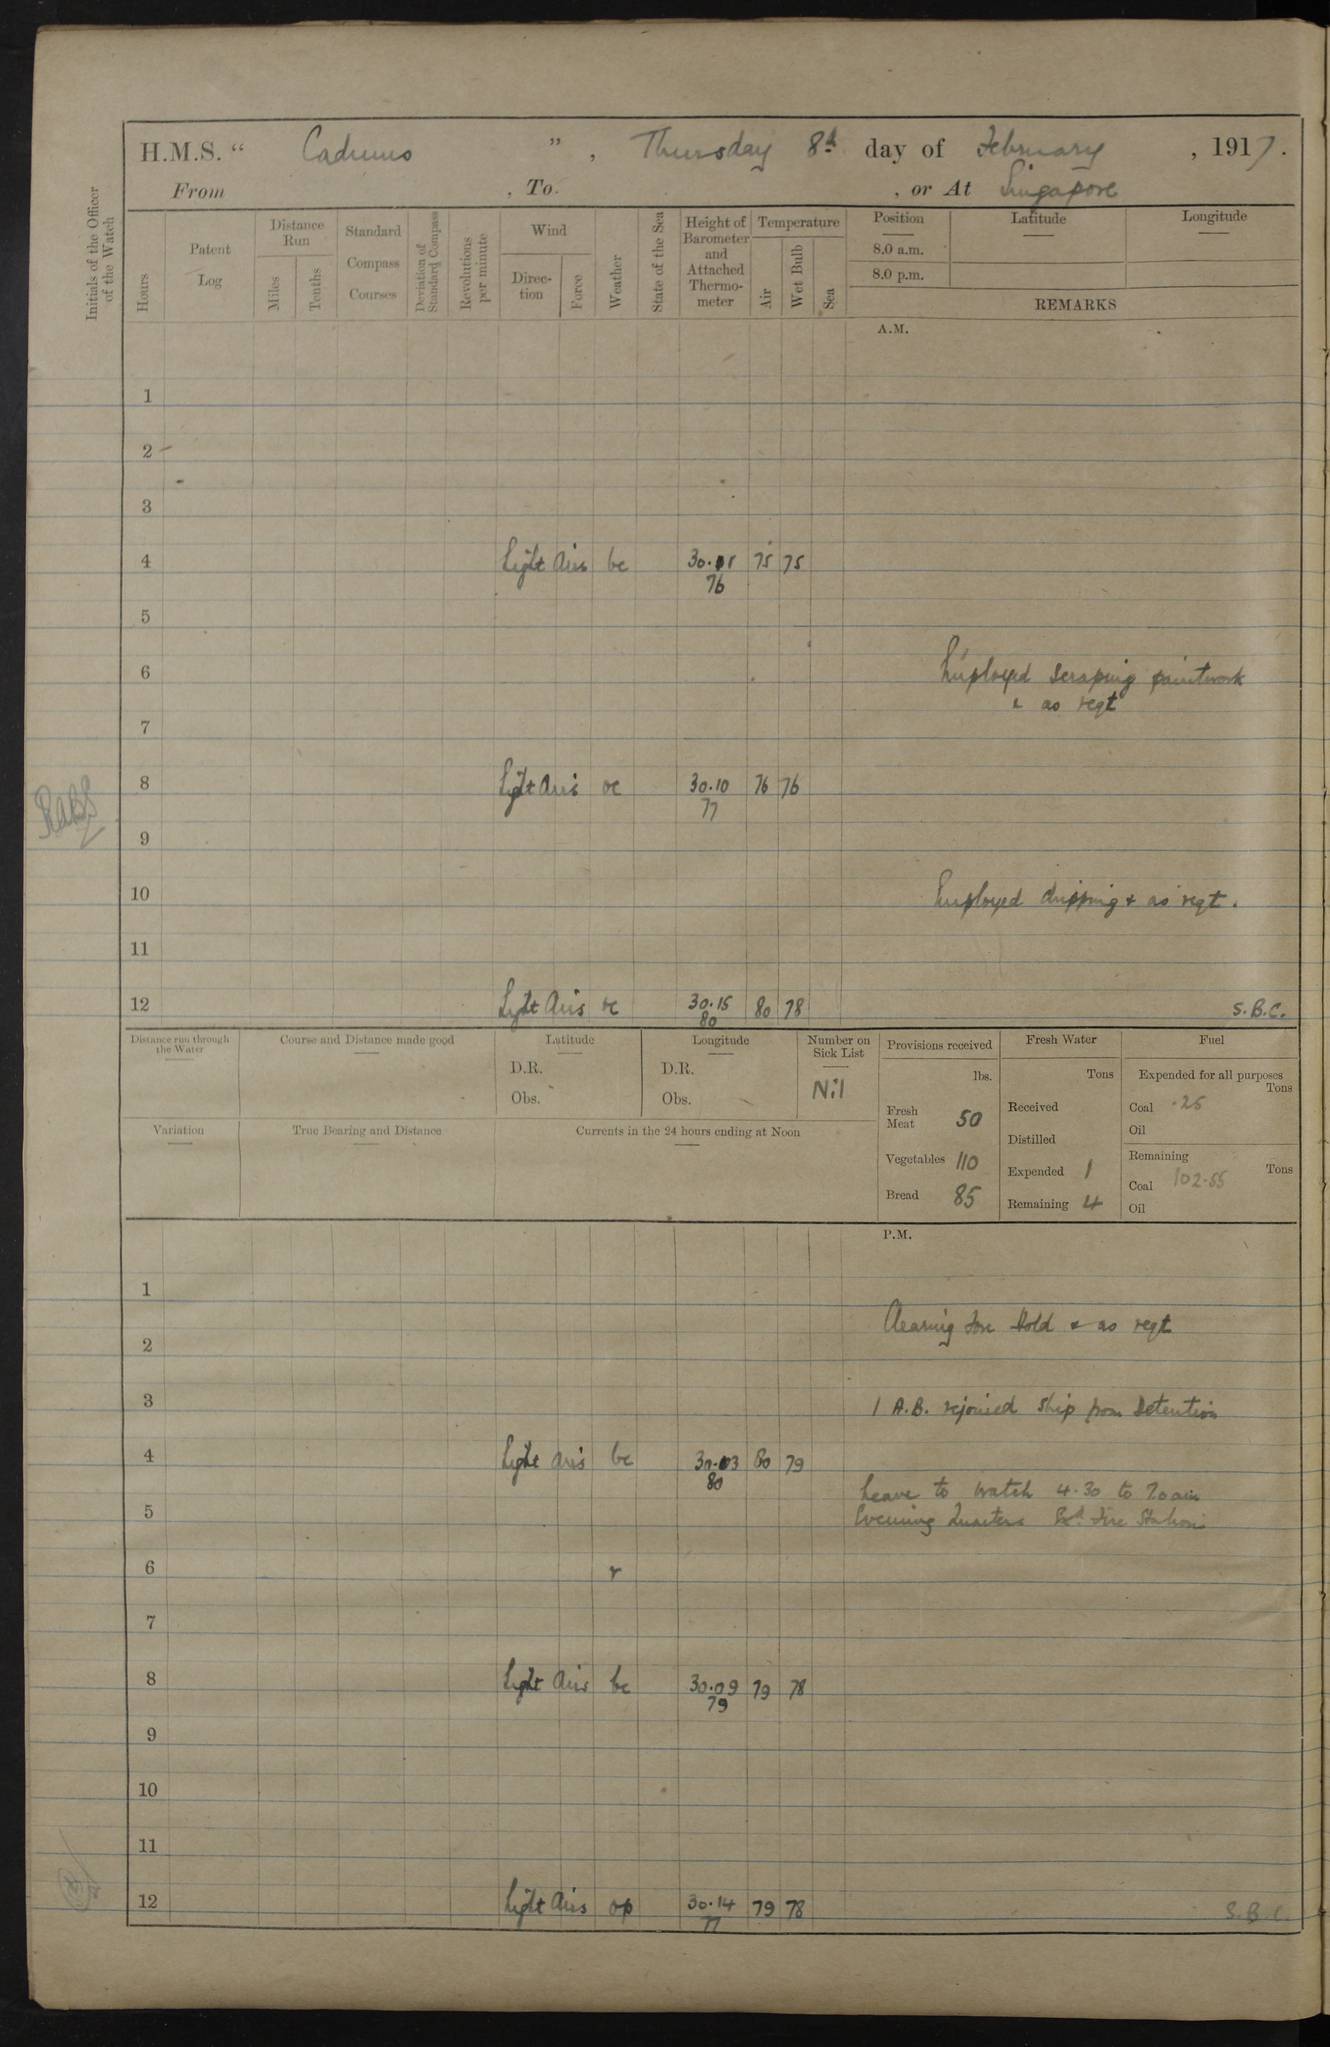 H.M.S. " Cadmus ", Thursday 8th day of February, 1917.
From , To , or At Singapore
Initials of the Officer of the Watch
Hours
Patent Log
Distance Run
Miles
Tenths
Standard Compass Courses
Deviation of Standard Compass
Revolutions per minute
Wind
Direction
Force
Weather
State of the Sea
Height of Barometer and Attached Thermometer
Temperature
Air
Wet Bulb
Sea
Position Latitude Longitude
8.0 a.m.
8.0 p.m.
REMARKS
A.M.
1
2
3
4 Light Airs bc 30.05 75 75
76
5
6 Employed scraping paintwork
& as reqt
7
8 Light Airs oc 30.10 76 76
77
9
10 Employed chipping & as reqt.
11
12 Light Airs oc 30.15 80 78 S.B.C.
80
Distance run through the Water
Course and Distance made good
Latitude
D.R.
Obs.
Longitude
D.R.
Obs.
Number on Sick List
Nil
Provisions received
lbs.
Fresh Meat 50
Vegetables 110
Bread 85
Fresh Water
Tons
Received
Distilled
Expended 1
Remaining 4
Fuel
Expended for all purposes
Tons
Coal .25
Oil
Remaining
Tons
Coal 102.55
Oil
Variation
True Bearing and Distance
Currents in the 24 hours ending at Noon
P.M.
1
Clearing Fore Hold & as reqt
2
3 1 A.B. rejoined Ship from Detention
4 Light Airs bc 30.03 80 79
80
Leave to Watch 4.30 to 7.0 am
5 Evening Quarters Exd. Fire Stations
6 r
7
8 Light Airs bc 30.09 79 78
79
9
10
11
12 Light Airs op 30.14 79 78 S.B.C.
77